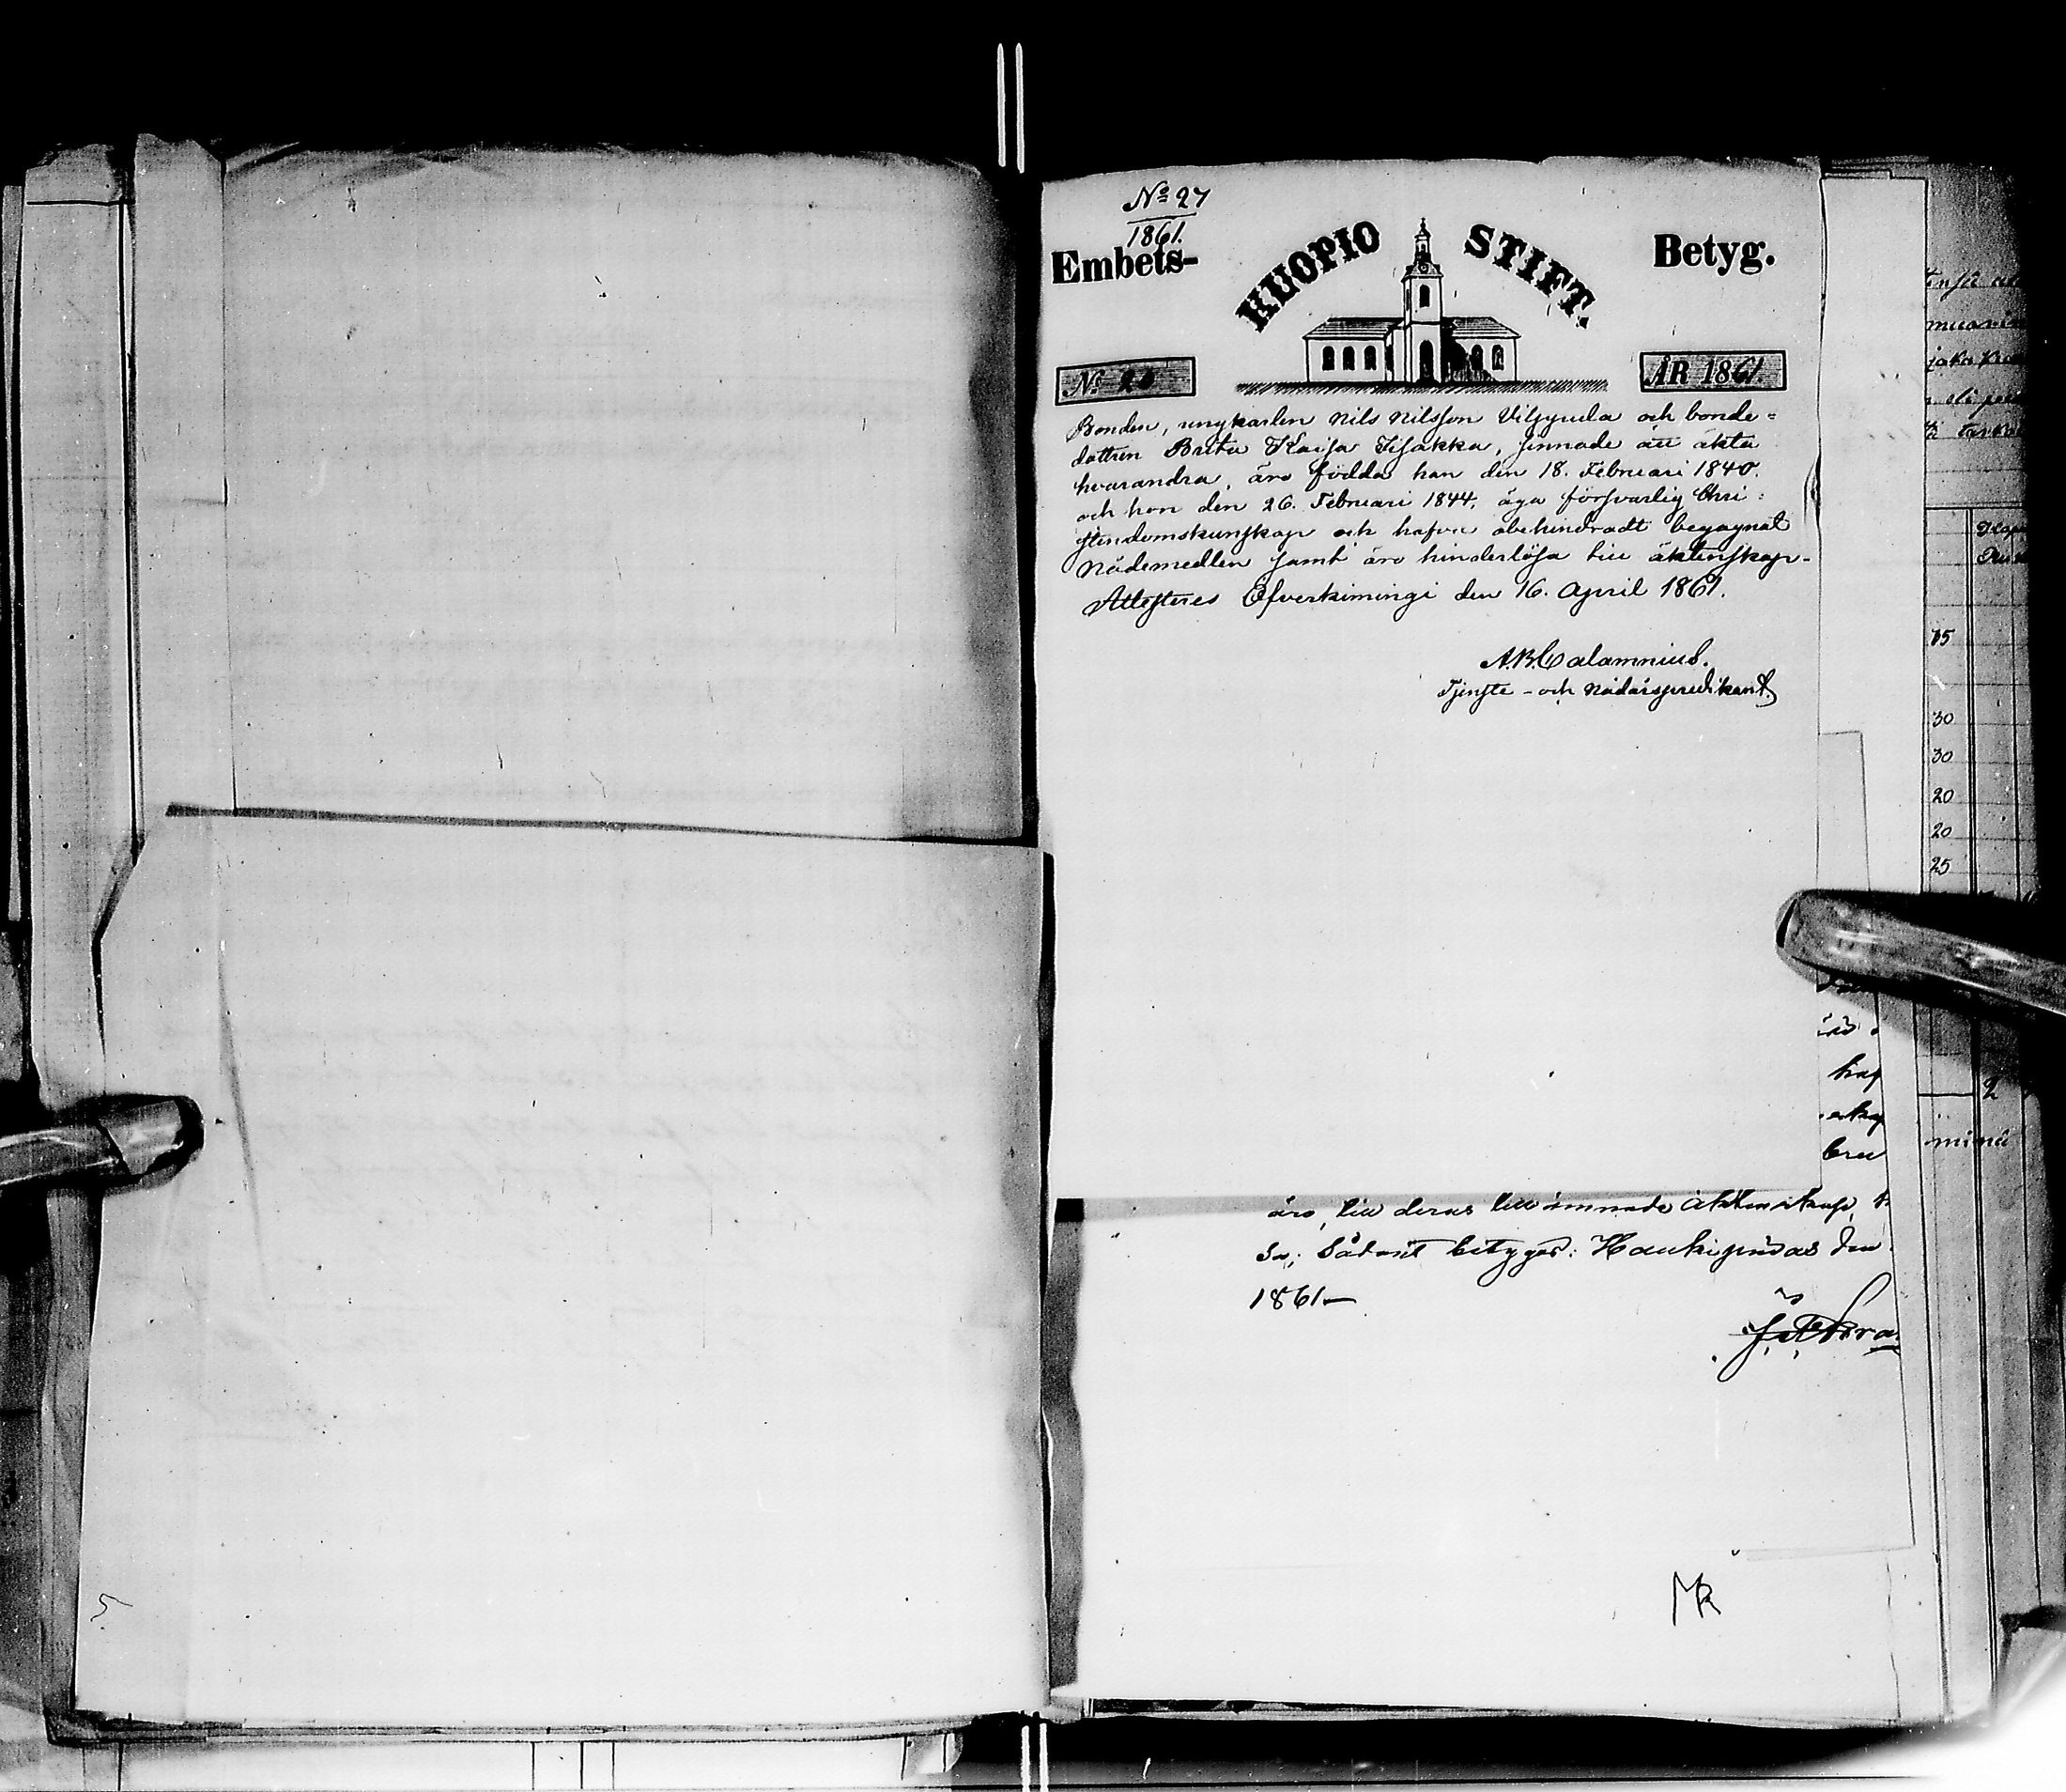 No 27
1861.
Embets-
KUOPIO STIFT.
Betyg.
No 20
ÅR 1861.
Bonden, ungkarlen Nils Nilsson Vilppula och bonde=
dottren Brita Kaisa Isakka, sinnade att äkta
hvarandra, äro födda han den 18. Februari 1840.
och hon den 26. Februari 1844, äga försvarlig Chri=
stendomskunskap och hafva obehindradt begagnat
Nådemedlen samt äro hinderlösa till äktenskap-
Attesteras Öfverkimingi den 16. April 1861.
A.B. Calamnius.
Tjenste- och Nådårspredikant.
äro, till deras tillämnade äktenskap,
Sådant betygar: Haukipudas den
1861
15
30
30
20
20
25
2